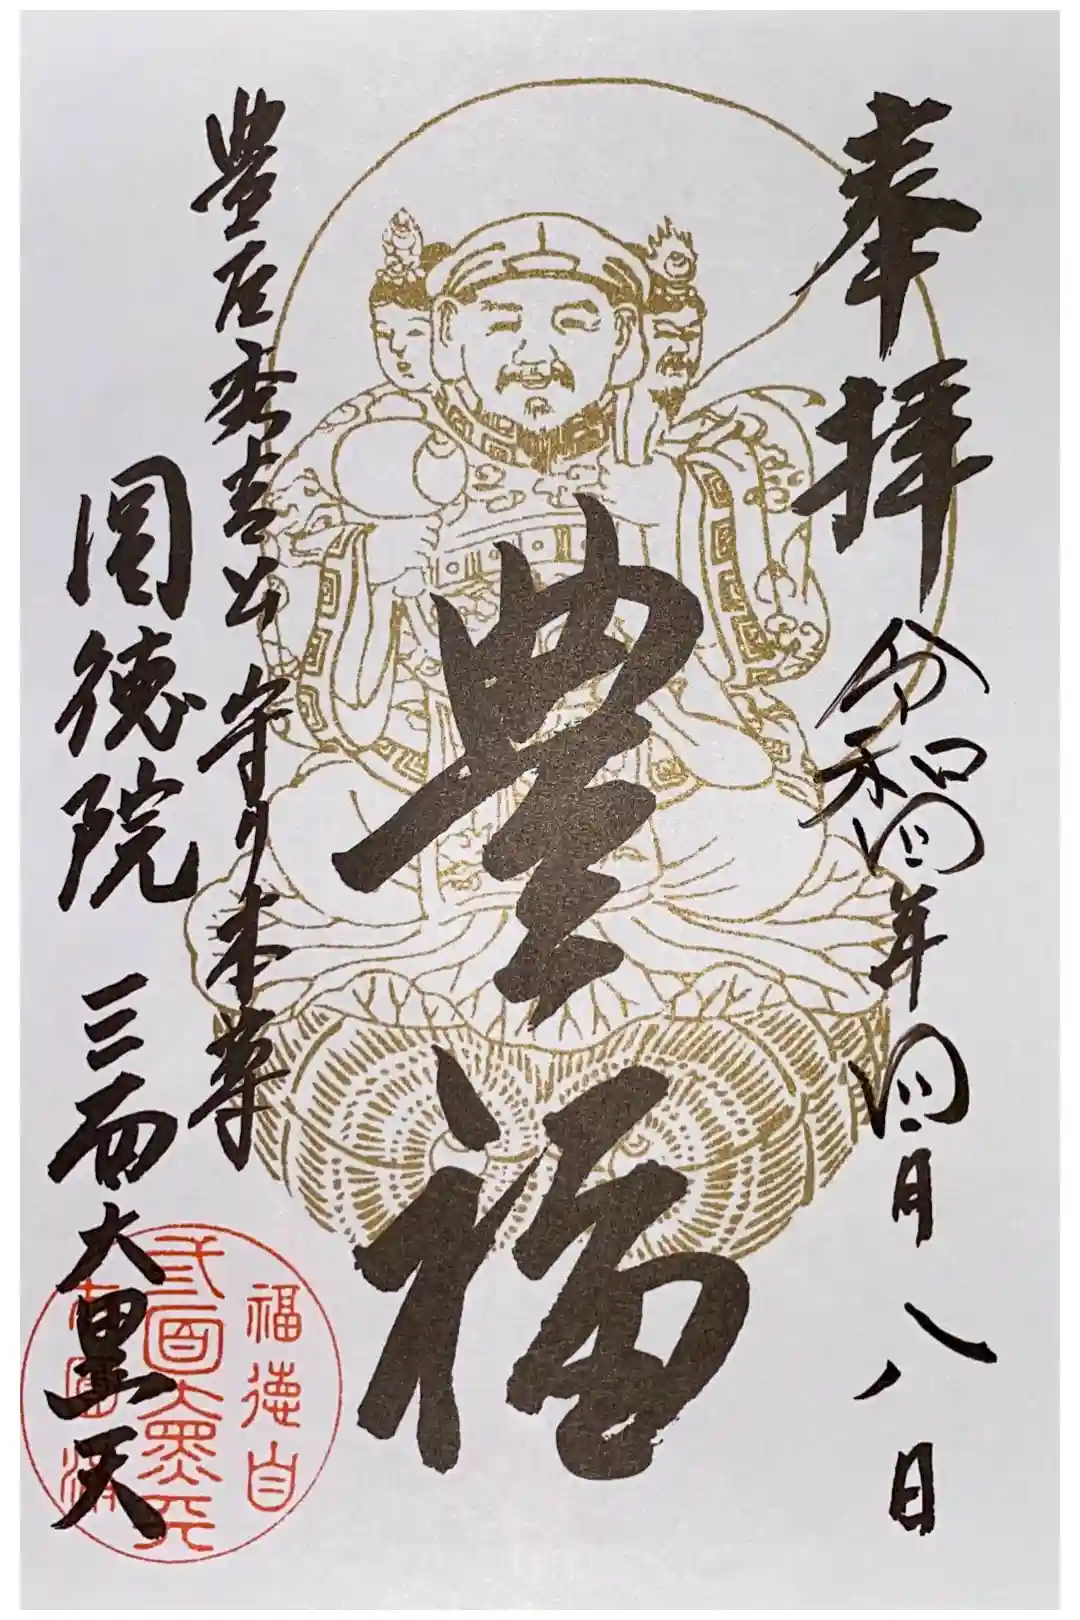 奉拝
令和四年四月八日
豊福
豊臣秀吉公 守り本尊
圓徳院 三面大黒天
福徳自
三面大黒天
圓満